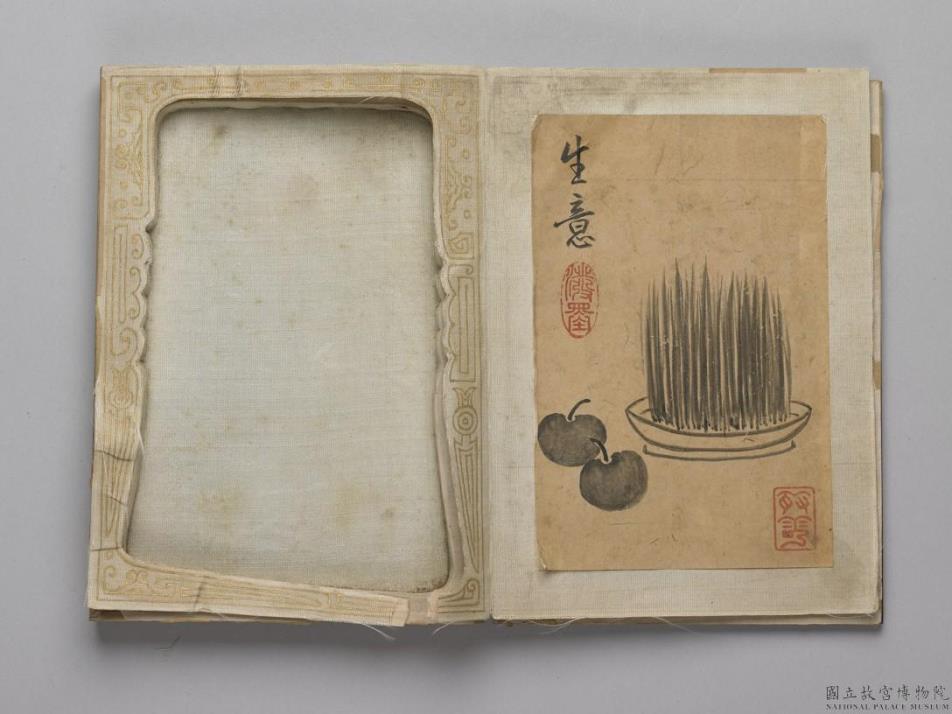 生意
潑墨
國立故宮博物院
NATIONAL PALACE MUSEUM